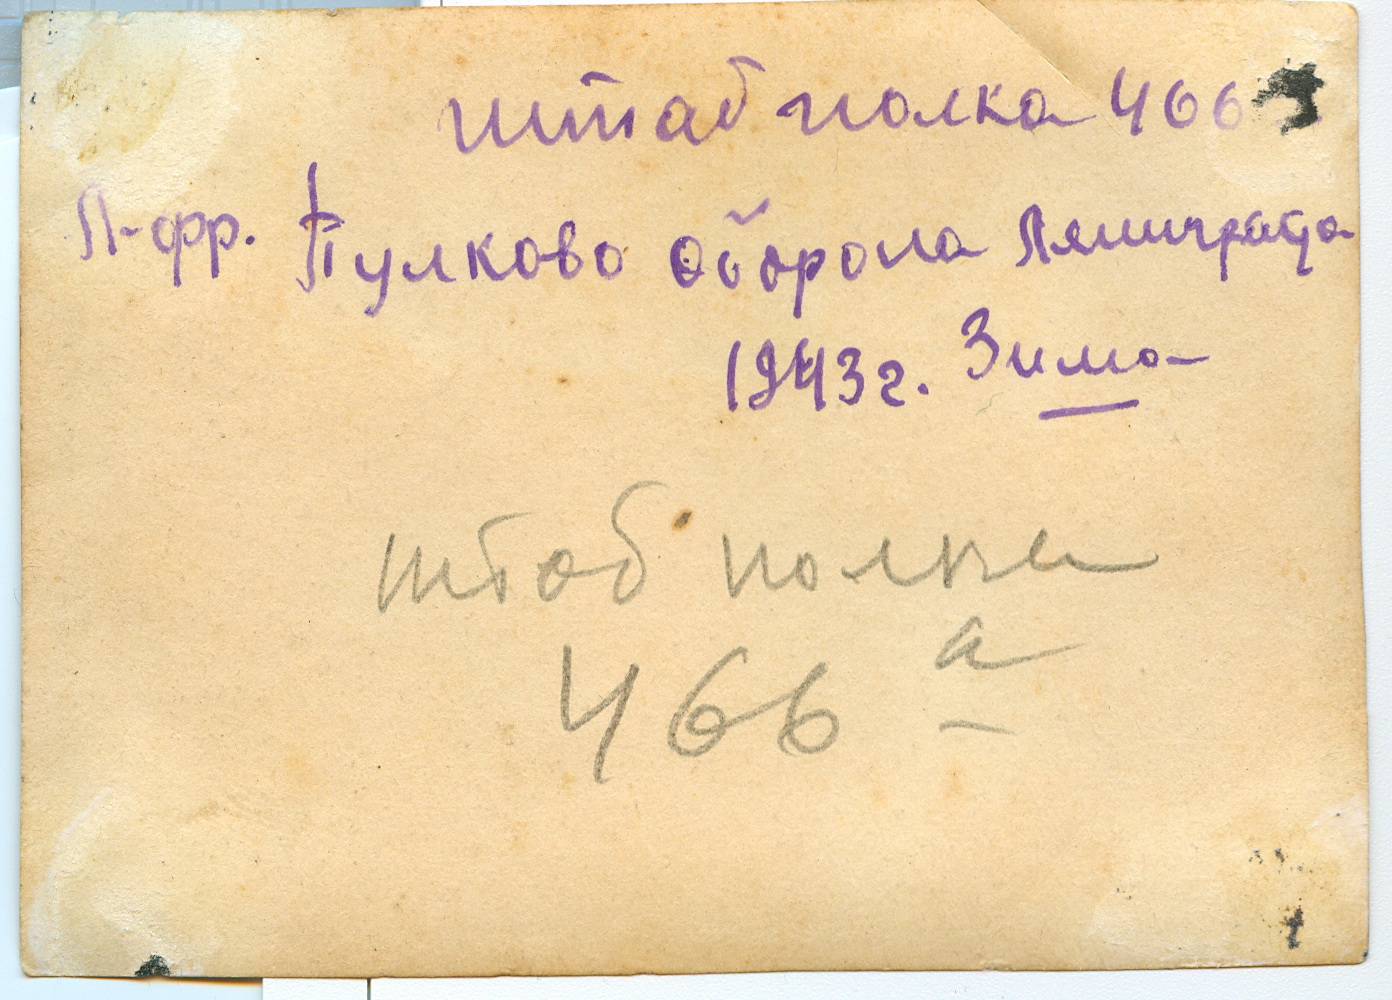 штаб полка 466
Л-фр. Пулково оборона Ляниграда
1943г. Зима
штаб полка
466 а